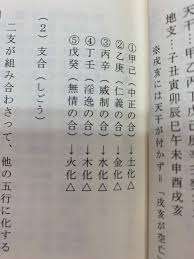 天干：甲乙丙丁
地支：子丑寅卯辰巳午未申酉戌亥
※戌亥には天干が付かず＝「戌亥が空亡」
①甲己（中正の合）→土化△
②乙庚（仁義の合）→金化△
③丙辛（威制の合）→水化△
④丁壬（淫逸の合）→木化△
⑤戊癸（無情の合）→火化△
（2）支合（しごう）
二支が組み合わさって、他の五行に化する